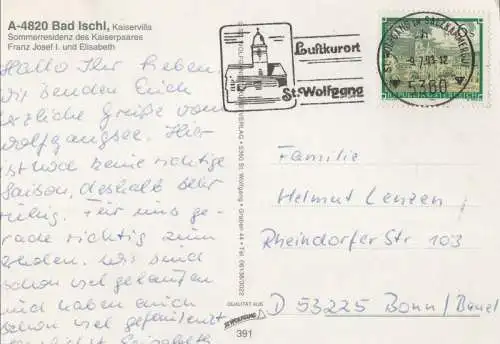 A-4820 Bad Ischl, Kaiservilla
Sommerresidenz des Kaiserpaares
Franz Josef I. und Elisabeth
Hallo Ihr Lieben.
Wir senden Euch
herzliche Grüße vom
Wolfgangsee. Hier
ist noch keine richtige
Saison, deshalb sehr
ruhig. Für uns ge-
rade richtig zum
Wir sind
schon viel gelaufen
und haben auch
schon viel
Elisabeth
VERLAG • 5360 St. Wolfgang •
QUALITÄT AUS
ST. WOLFGANG
391
Luftkurort
St. Wolfgang
ST. WOLFGANG IM SALZKAMMERGUT
5360
Familie
Helmut Lenzen
Rheindorfer Str 103
D 53225 Bonn/Beuel